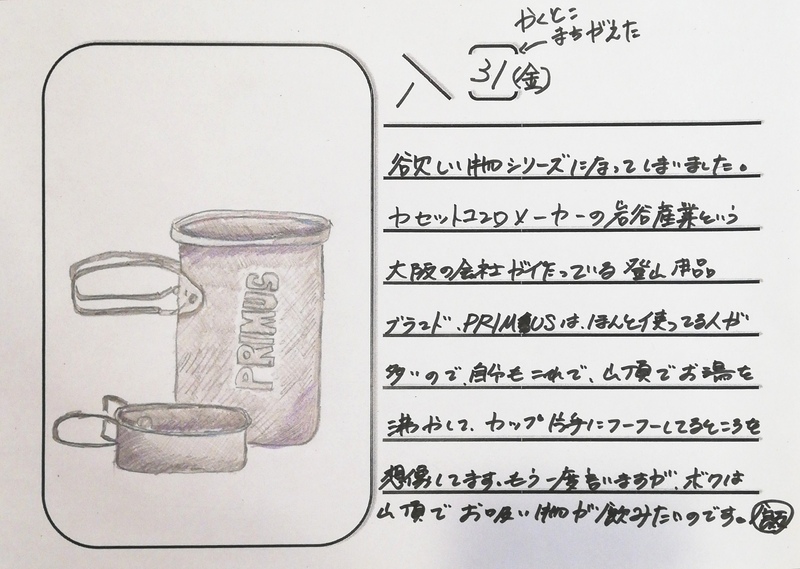 かくとこ
まちがえた
31(金)
欲しい物シリーズになってしまいました。
カセットコンロメーカーの岩谷産業という
大阪の会社が作っている登山用品
ブランド、PRIMUSは、ほんと使ってる人が
多いので、自分もこれで、山頂でお湯を
沸かして、カップ片手にフーフーしてるところを
想像してます。もう一度言いますが、ボクは
山頂でお吸い物が飲みたいのです。
PRIMUS